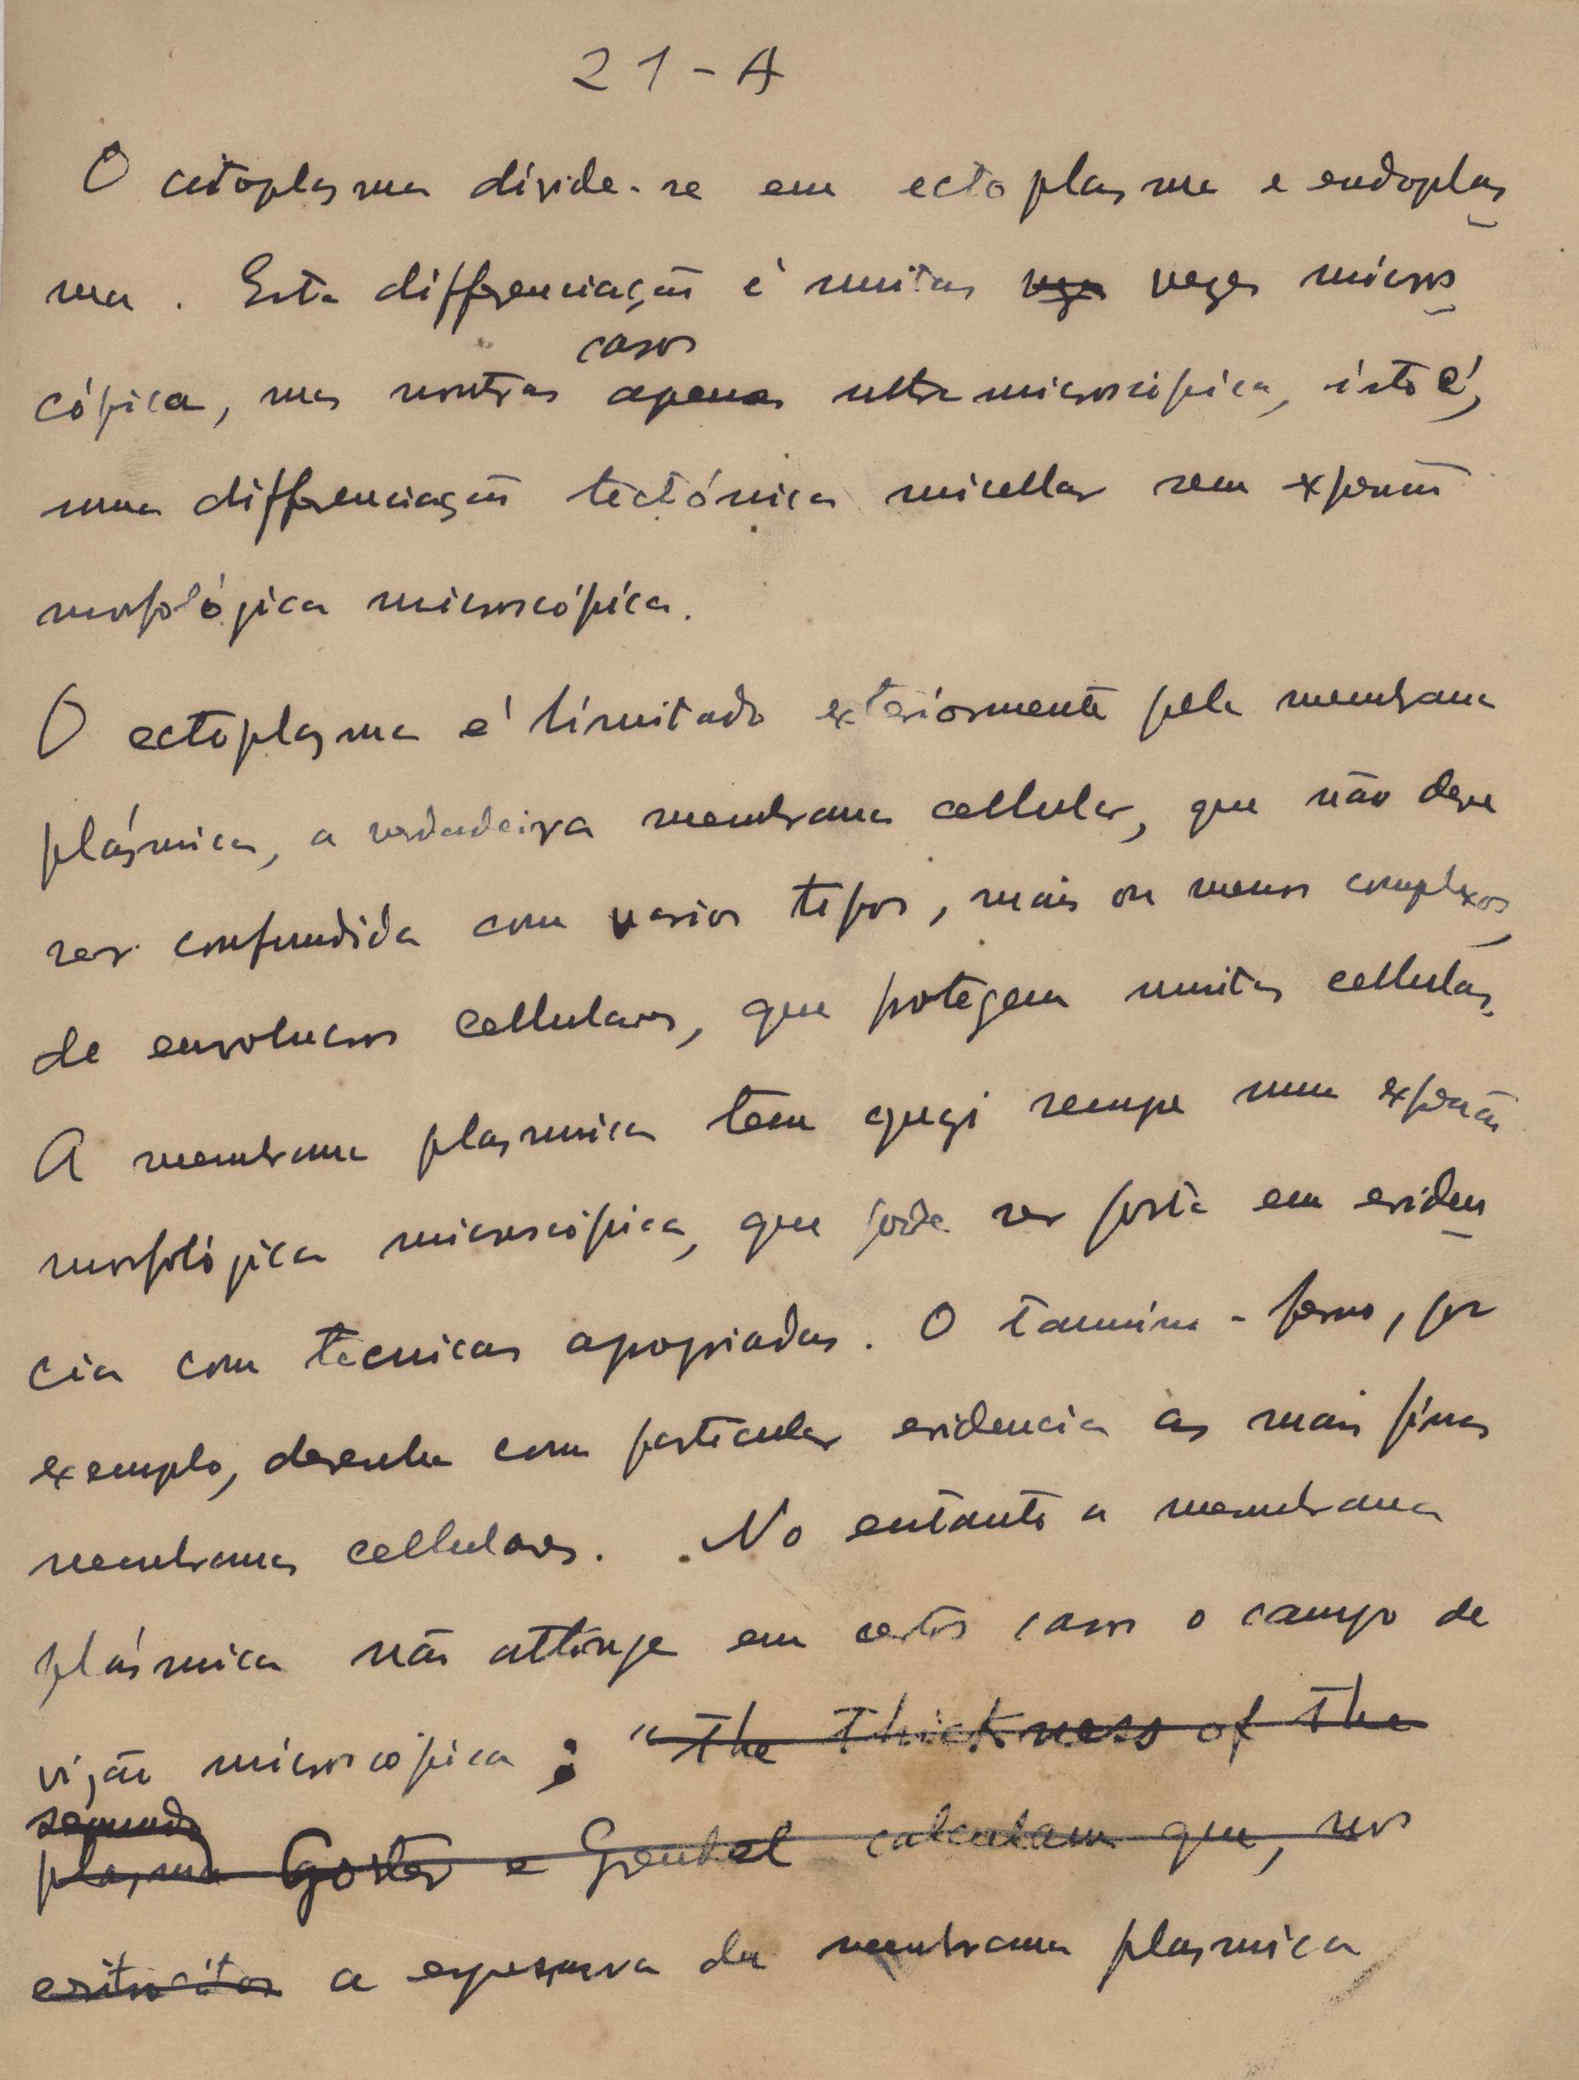 21-A
O citoplasma divide-se em ectoplasma e endoplas
ma. Esta differenciação é muitas vezes micros
casos
cópica, mas noutros apenas ultramicroscópica, isto é,
uma differenciação tectónica micellar sem expressão
morfológica microscópica.
O ectoplasma é limitado exteriormente pela membrana
plásmica, a verdadeira membrana cellular, que não deve
ser confundida com varios tipos, mais ou menos complexos,
de envolucros cellulares, que protegem muitas cellulas.
A membrana plasmica tem quasi sempre uma expressão
morfológica microscópica, que pode ser posta em eviden
cia com tecnicas apropriadas. O tannino-ferro, por
exemplo, desenha com particular evidencia as mais finas
membranas cellulares. No entanto a membrana
plásmica não attinge em certos casos o campo de
visão microscópica; "the thickness of the
segundo
plasma Gorter e Grendel calculam que, nos
eritrocitos a espessura da membrana plasmica